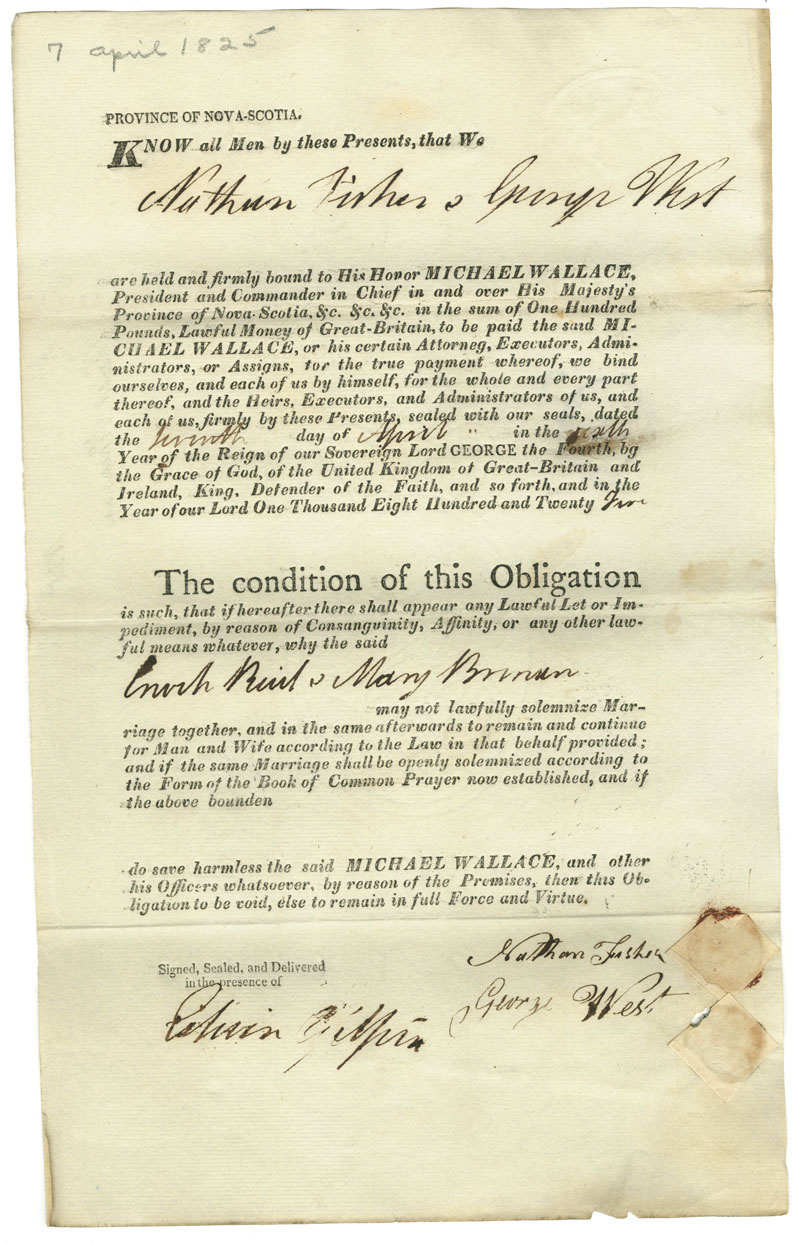 7 april 1825
PROVINCE OF NOVA-SCOTIA.
KNOW all Men by these Presents, that We
Nathan Fisher & George West
are held and firmly bound to His Honor MICHAEL WALLACE,
President and Commander in Chief in and over His Majesty's
Province of Nova-Scotia, &c. &c. &c. in the sum of One Hundred
Pounds, Lawful Money of Great-Britain, to be paid the said MI-
CHAEL WALLACE, or his certain Attorneg, Executors, Admi-
nistrators, or Assigns, for the true payment whereof, we bind
ourselves, and each of us by himself, for the whole and every part
thereof, and the Heirs, Executors, and Administrators of us, and
each of us, firmly by these Presents, sealed with our seals, dated
the Seventh day of April " in the sixth
Year of the Reign of our Sovereign Lord GEORGE the Fourth, by
the Grace of God, of the United Kingdom of Great-Britain and
Ireland, King, Defender of the Faith, and so forth, and in the
Year of our Lord One Thousand Eight Hundred and Twenty Five
The condition of this Obligation
is such, that if hereafter there shall appear any Lawful Let or Im-
pediment, by reason of Consanguinity, Affinity, or any other law-
ful means whatever, why the said
Enoch & Mary
may not lawfully solemnize Mar-
riage together, and in the same afterwards to remain and continue
for Man and Wife according to the Law in that behalf provided;
and if the same Marriage shall be openly solemnized according to
the Form of the Book of Common Prayer now established, and if
the above bounden
do save harmless the said MICHAEL WALLACE, and other
his Officers whatsoever, by reason of the Premises, then this Ob-
ligation to be void, else to remain in full Force and Virtue.
Signed, Sealed, and Delivered
in the presence of
Nathan Fisher
George West
Edwin Gilpin